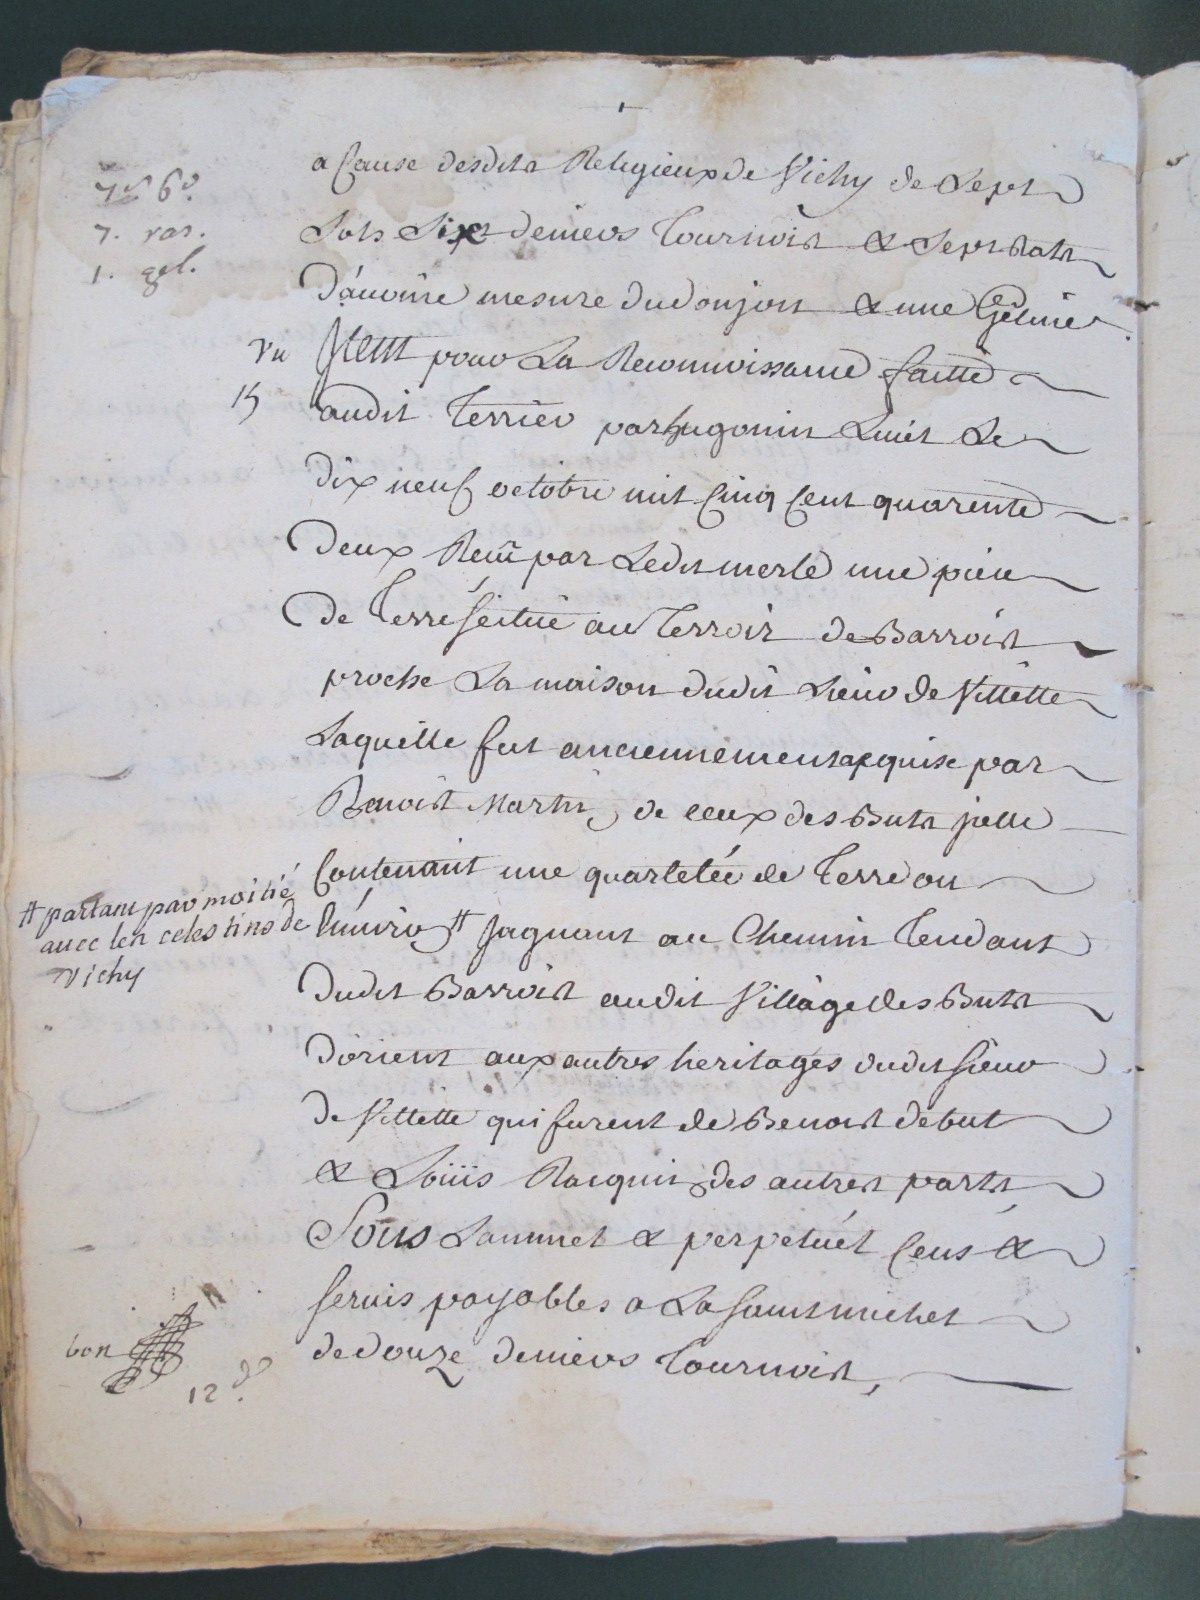 a Cause desdits Religieux de Vichy de Sept
7s 6d
Sols Six deniers Tournois & Sept Rats
7. ras.
1. gel.
D'auoine mesure dudonjon & une Geline
Vu
Item pour La Reconnoissance faitte
15
audit Terrier par hugonin Liuet Le
Dix neuf octobre mil Cinq Cent quarente
Deux Receu par Ledit merle une piece
De Terre Scitüe au Terroir de Barrois
proche La maison dudit Sieur de Villette
Laquelle fut anciennement acquise par
Benoist Martin, de ceux des Buts jcelle
Contenant une quartelée de Terre ou
# partant par moitié
auec les celestins de
Vichy
Enuiron # Jognant au Chemin Tendant
Dudit Barrois audit Village des Buts
D'orient aux autres heritages dudit Sieur
de Villette qui furent de Benoist debut
& Loüis Racquin des autres parts
Sous Lannuel & perpetuél Cens &
seruis payables a La saint michel
de douze deniers Tournois,
bon
12 d.